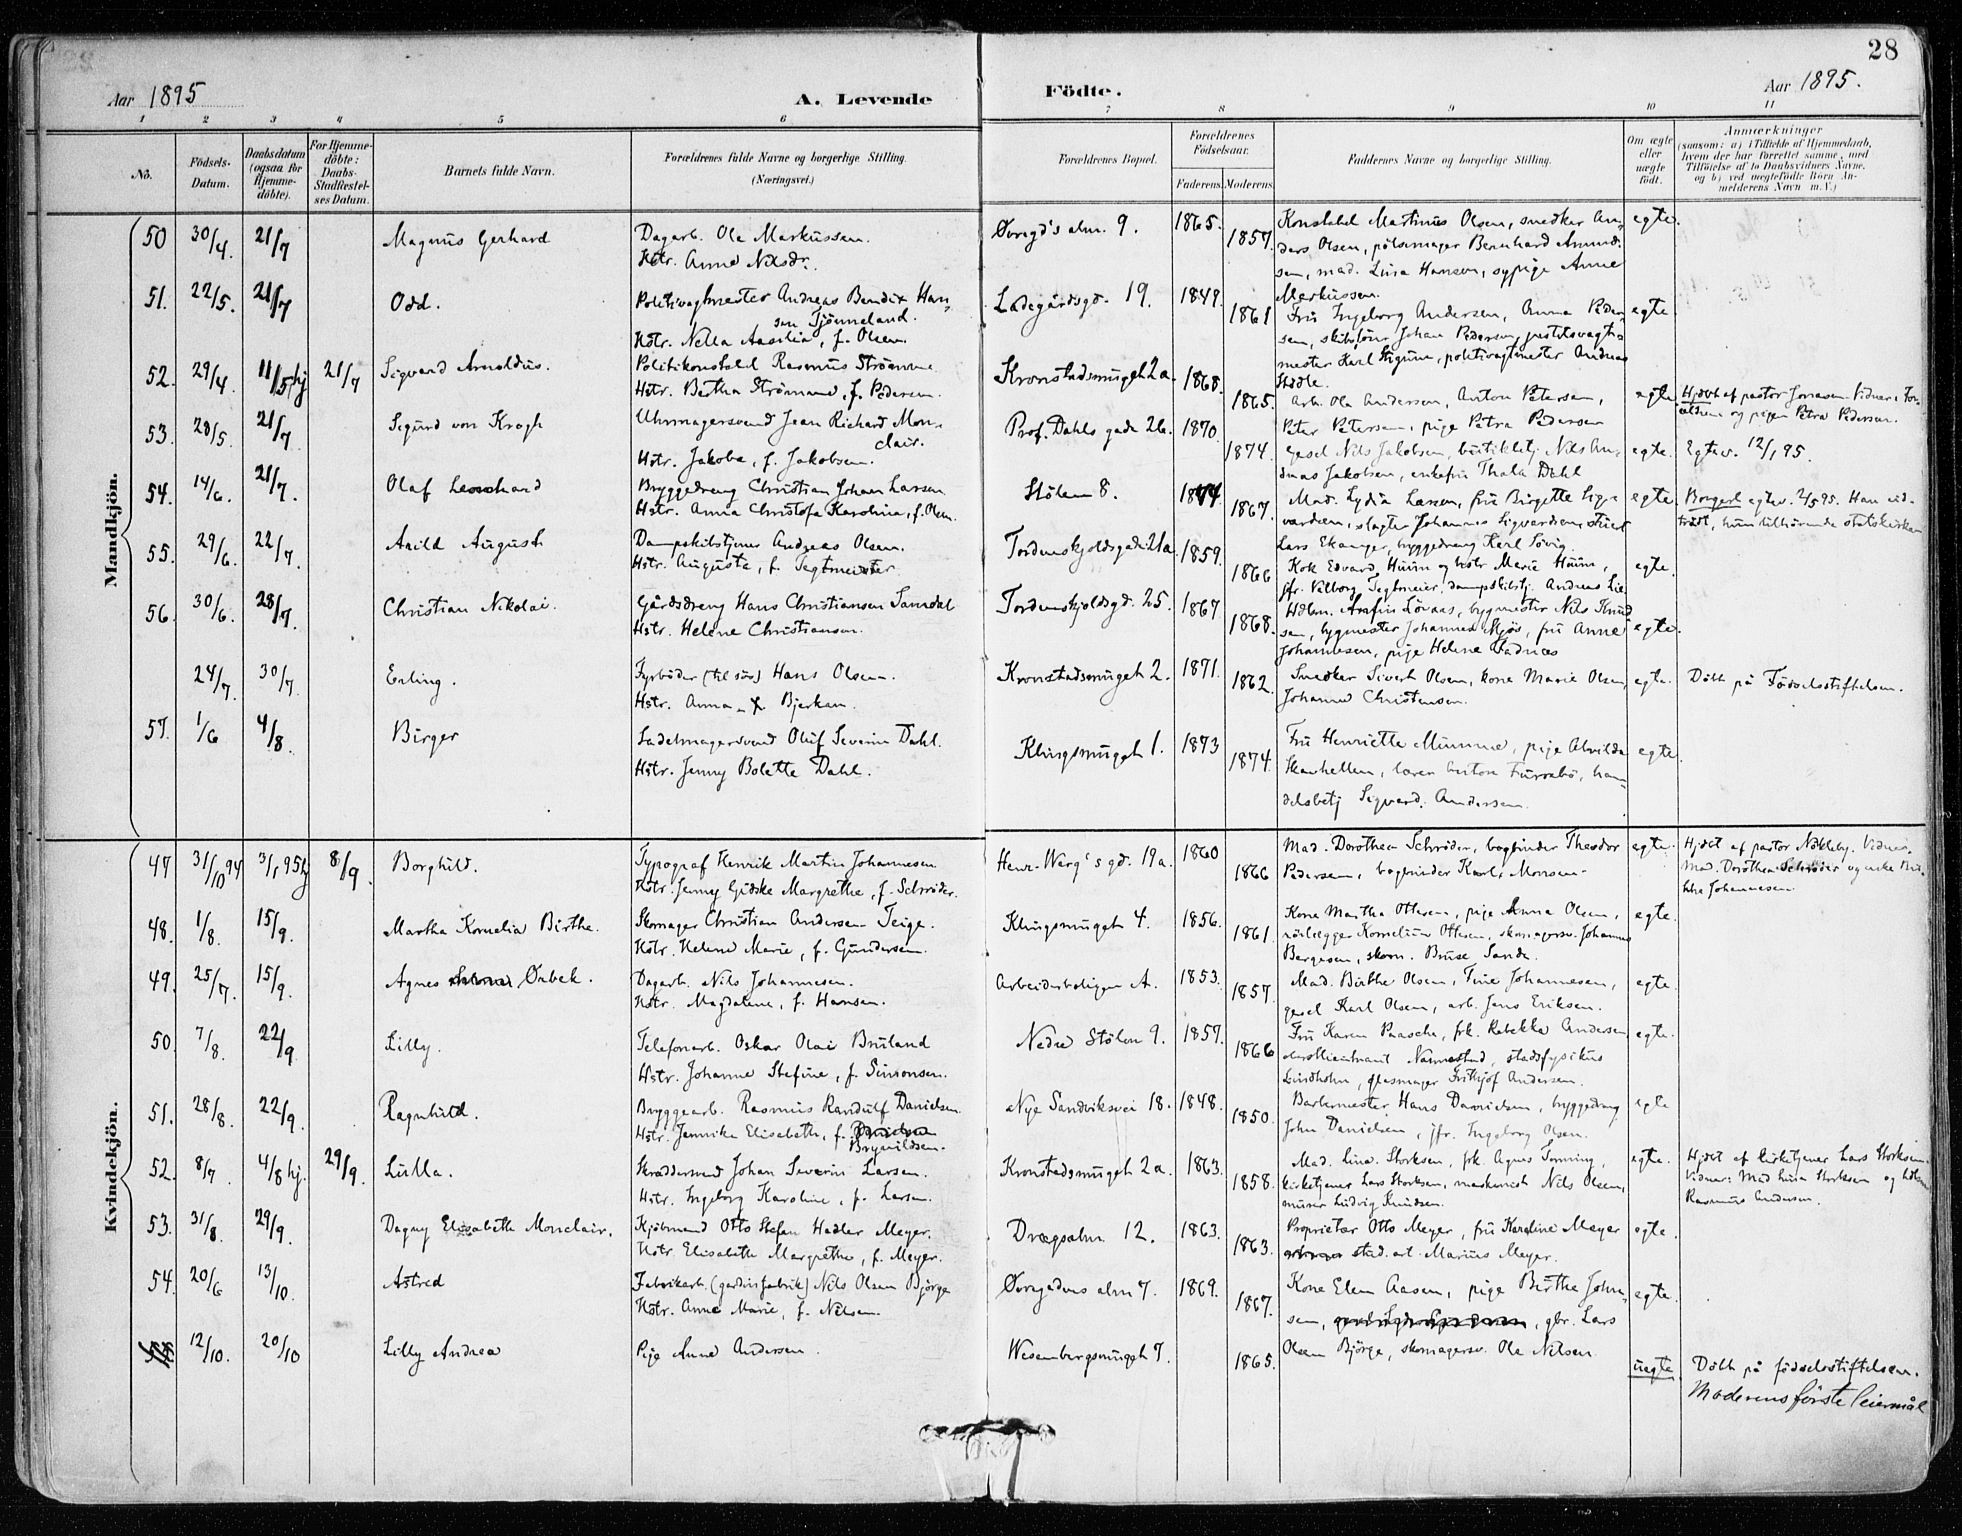 28
Aar 1895
A. Levende
Födte.
Aar 1895.
1 2 3 4 5 6 7 8 9 10 11
No.
Födsels-Datum.
Daabsdatum (ogsaa for Hjemme-döbte).
For Hjemme-döbte: Daabs-Stadfæstel-ses Datum.
Barnets fulde Navn.
Forældrenes fulde Navne og borgerlige Stilling.
(Næringsvei.)
Forældrenes Bopæl.
Forældrenes Födselsaar.
Faderens Moderens
Faddernes Navne og borgerlige Stilling.
Om ægte eller uægte födt.
Anmærkninger
(saasom: a) i Tilfælde af Hjemmedaab, hvem der har forrettet samme, med Tilföielse af to Daabsvidners Navne, og b) ved uægtefödte Börn An-melderens Navn m. V.)
Mandkjön.
50 30/4 21/7 Magnus Gerhard
Dagarb. Ola Markussen.
Hstr. Anne Nilsdr.
Øvregd's alm. 9. 1865. 1857.
Konstabel Martinus Olsen, snedker An-
ders Olsen, pölsemager Bernhard Amund-
sen, mad. Lina Hansen, sypige Anne
Markussen.
egte.
51. 22/5. 21/7 Odd.
Politivagtmester Andreas Bendix Han-
sen Tjönneland.
Hstr. Nella Aasilia, f. Olsen.
Ladegårdsgd. 19. 1849. 1861
Fru Ingeborg Andersen, Anna Peder-
sen, skibsförer Johan Pedersen, justitsvagt-
mester Karl Stigum, politivagtmester Andreas
Stödle.
egte.
52. 29/4. 11/5 hj 21/7 Sigvard Arnoldus.
Politikonstabel Rasmus Strömme
Hstr. Bertha Strömme, f. Pedersen.
Kronstadsmuget 2a. 1868. 1865.
Arb. Ola Andersen, Anton Petersen,
Peter Petersen, pige Petra Pedersen
egte
Hjdöbt af pastor Jonassen. Vidner: For-
ældrene og pigen Petra Pedersen.
53. 28/5. 21/7. Sigurd von Krogh
Uhrmagersvend Jean Richard Mon-
clair.
Hstr. Jakoba, f. Jakobsen.
Prof. Dahls gade 26. 1870. 1874.
Gesel Nils Jakobsen, butikbetj. Nils An-
dreas Jakobsen, enkefru Thala Dahl
egte.
Egtev. 12/1 95.
54. 14/6. 21/7. Olaf Leonhard
Bryggedreng Christian Johan Larsen
Hstr. Anna Christofa Karolina, f. Olsen.
Stölen 8. 1874. 1867.
Mad. Lydia Larsen, fru Birgette Sig-
vardsen, slagter Johannes Sigvardsen,
Lars Ekanger, bryggedreng Karl Sövig.
egte.
Borgerl. egtev. 2/5 95. Han ud-
trådt, hun tilhörende statskirken
55. 29/6. 22/7. Arild August
Dampskibstjener Andreas Olsen.
Hstr. Augusta, f. Tegtmeier
Tordenskjoldsgade 21a. 1859. 1866
Kok Edvard Huun og hstr Marie Huun,
jfr. Valborg Tegtmeier, dampskibstj. Andreas Lie
egte.
56. 30/6. 28/7. Christian Nikolai.
Gårdsdreng Hans Christiansen Samdal
Hstr. Helene Christiansen.
Tordenskjoldsgd. 25. 1867 1868.
Hdlsm. Arafin Lövaas, bygmester Nils Knud-
sen, bygmester Johannes Mjös, fru Anne
Johannesen, pige Helene Fadnæs
egte.
24/7. 30/7. Erling.
Fyrböder (til sös) Hans Olsen.
Hstr. Anna, f. Bjerkan.
Kronstadsmuget 2. 1871. 1862.
Snedker Sivert Olsen, kone Marie Olsen,
Johanne Christensen.
egte.
Döbt på Födselsstiftelsen.
57. 1/6 4/8. Birger
Sadelmagersvend Oluf Severin Dahl.
Hstr. Jenny Bolette Dahl.
Klingsmuget 1. 1873 1874.
Fru Henriette Mumme, pige Alvilda
Skauhellen, lærer Anton Furrebö, han-
delsbetj Sigvard. Andersen.
egte.
Kvindekjön.
47 31/10 94 3/1 95 hj 8/9. Borghild.
Typograf Henrik Martin Johannesen
Hstr. Jenny Gidske Margrethe, f. Schröder.
Henr. Werg's gd. 19a. 1860 1866
Mad. Dorothea Schröder, bogbinder Theodor
Pedersen, bogbinder Karl Monsen.
egte.
Hjdöbt af pastor Nökleby. Vidner:
Mad. Dorothea Schröder og enke
Johannesen.
48. 1/8. 15/9. Martha Kornelia Birthe.
Skomager Christian Andersen Teige.
Hstr. Helene Marie, f. Gundersen.
Klingsmuget 4. 1856. 1861.
Kone Martha Ottesen, pige Anna Olsen,
rörlægger Kornelius Ottesen, skomagersv. Johannes
Bergesen, skom. Bruse Sande.
egte.
49. 25/7. 15/9. Agnes Ørbek.
Dagarb. Nils Johannesen.
Hstr. Magdalene, f. Hansen.
Arbeiderboligen A. 1853. 1857.
Mad. Birthe Olsen, Tine Johannesen,
gesel Karl Olsen, arb. Jens Eriksen.
egte.
50. 7/8. 22/9 Lilly.
Telefonarb. Oskar Olai Bruland
Hstr. Johanne Stefine, f. Simonsen.
Nedre Stölen 9. 1857. 1866
Fru Karen Paasche, frk. Rebekka Andersen,
oberstlieutenant Nannestad, stadsfysikus
Lindholm, glasmager Frithjof Andersen.
egte.
51. 28/8. 22/9. Ragnhild.
Bryggearb. Rasmus Randulf Danielsen.
Hstr. Jannika Elisabeth, f. Danielsen
Brynildsen.
Nye Sandviksvei 18. 1848. 1850.
Barbermester Hans Danielsen, bryggedreng
John Danielsen, jfr. Ingeborg Olsen.
egte
52. 8/7. 4/8 hj. 29/9. Lulla.
Skræddersvend Johan Severin Larsen.
Hstr. Ingeborg Karoline, f. Larsen.
Kronstadsmuget 2a. 1863. 1858.
Mad. Lina Storksen, frk. Agnes Sonning,
kirketjener Lars Storksen, maskinist Nils Olsen,
murer Ludvig Knudsen.
egte.
Hjdöbt af kirketjener Lars Storksen
Vidner: Mad Lina Storksen og
Rasmus Andersen.
53. 31/8. 29/9. Dagny Elisabeth Monclair.
Kjöbmand Otto Stefan Hadler Meyer.
Hstr. Elisabeth Margrethe, f. Meyer.
Dragsalm. 12. 1863. 1863.
Proprietær Otto Meyer, fru Karoline Meyer
stud. art. Marius Meyer.
egte.
54. 20/6 13/10. Astrid
Fabrikarb. (gardinfabrik) Nils Olsen Björge
Hstr. Anne Marie, f. Nilsen.
Øvregadens alm 7. 1869. 1867.
Kone Elen Aasen, pige Birthe John-
sen, gbr. Lars
Olsen Björge, skomagersv. Ola Nilsen
egte.
55. 12/10. 20/10 Lilly Andrea
Pige Anne Andersen.
Wesenbergsmuget 7. 1865.
uegte
Döbt på födselsstiftelsen.
Moderens förste leiermål